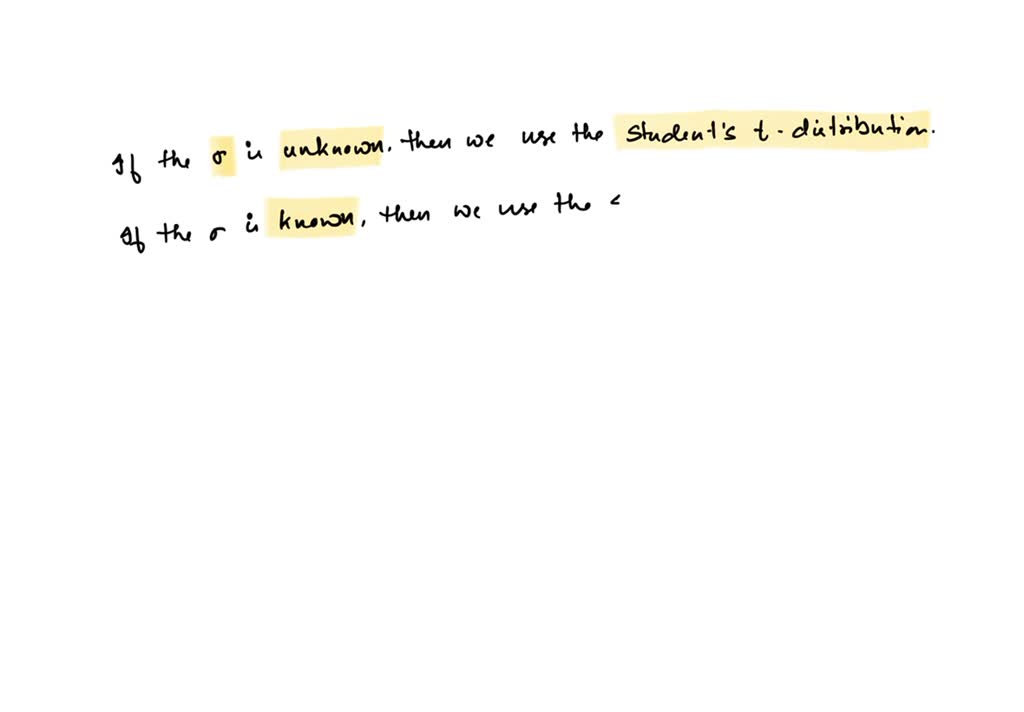 If the σ is unknown, then we use the Student's t-distribution.
If the σ is known, then we use the